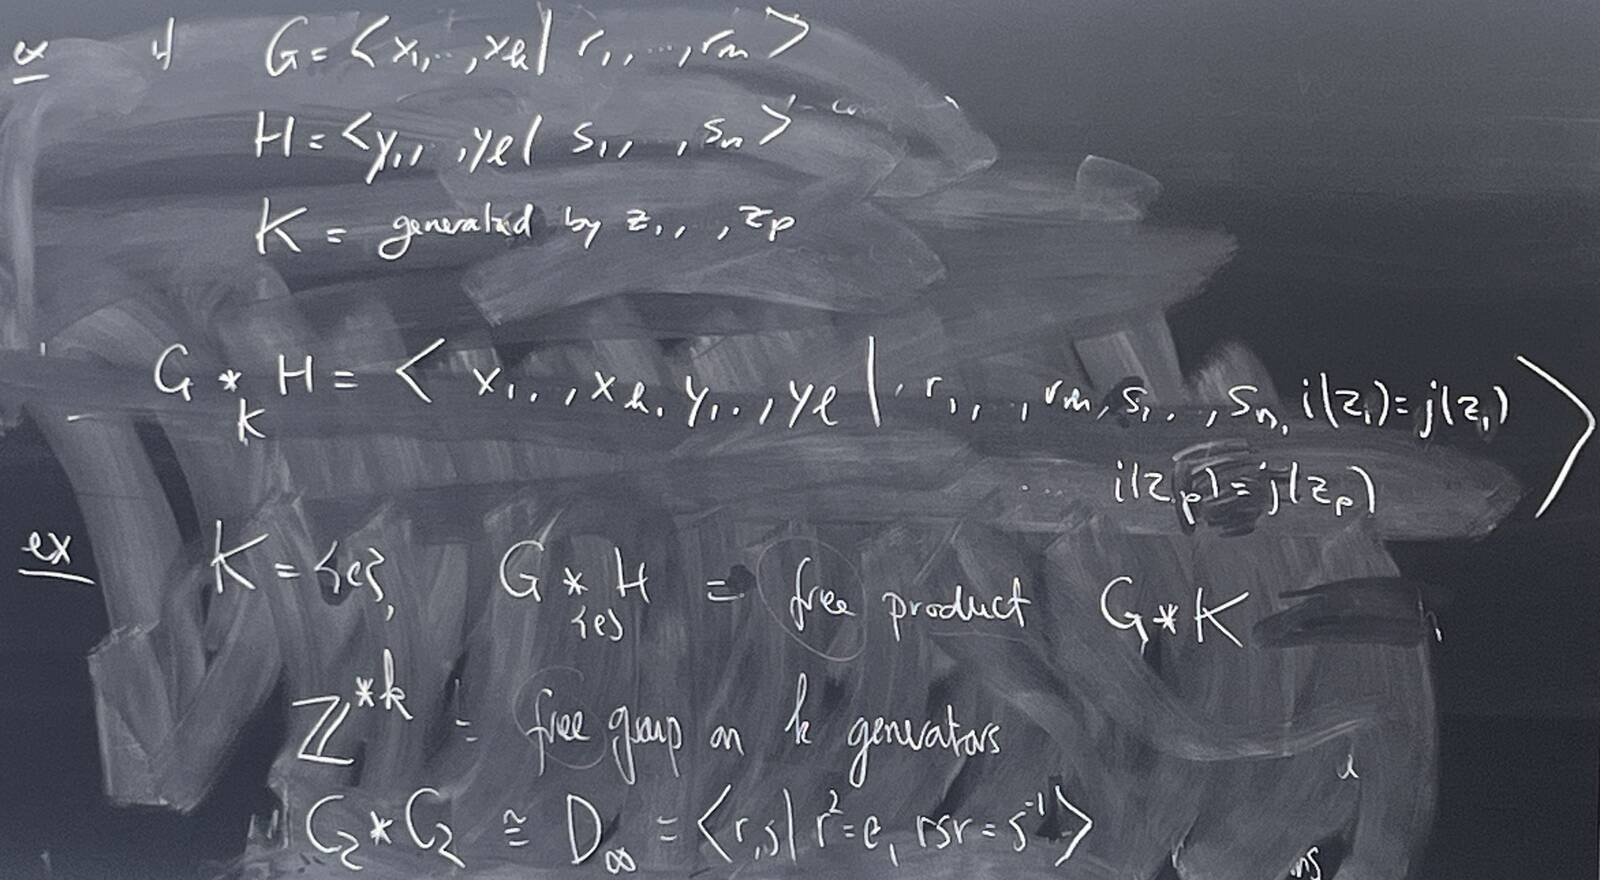 ex if G = < x₁, .., xₖ | r₁, , ..., rₘ >
H = < y₁, , , yₗ | s₁, , , sₙ >
K = generated by z₁, , , zₚ
G *_K H = < x₁ . . , xₖ, y₁ . . , yₗ | r₁, , , rₘ, s₁ . . , sₙ, i(z₁) = j(z₁)
.... i(zₚ) = j(zₚ) >
ex K = {e}, G *_{e} H = free product G * K
ℤ^{*k} = free group on k generators
C₂ * C₂ ≅ D_∞ = < r, s | r² = e, rsr = s⁻¹ >